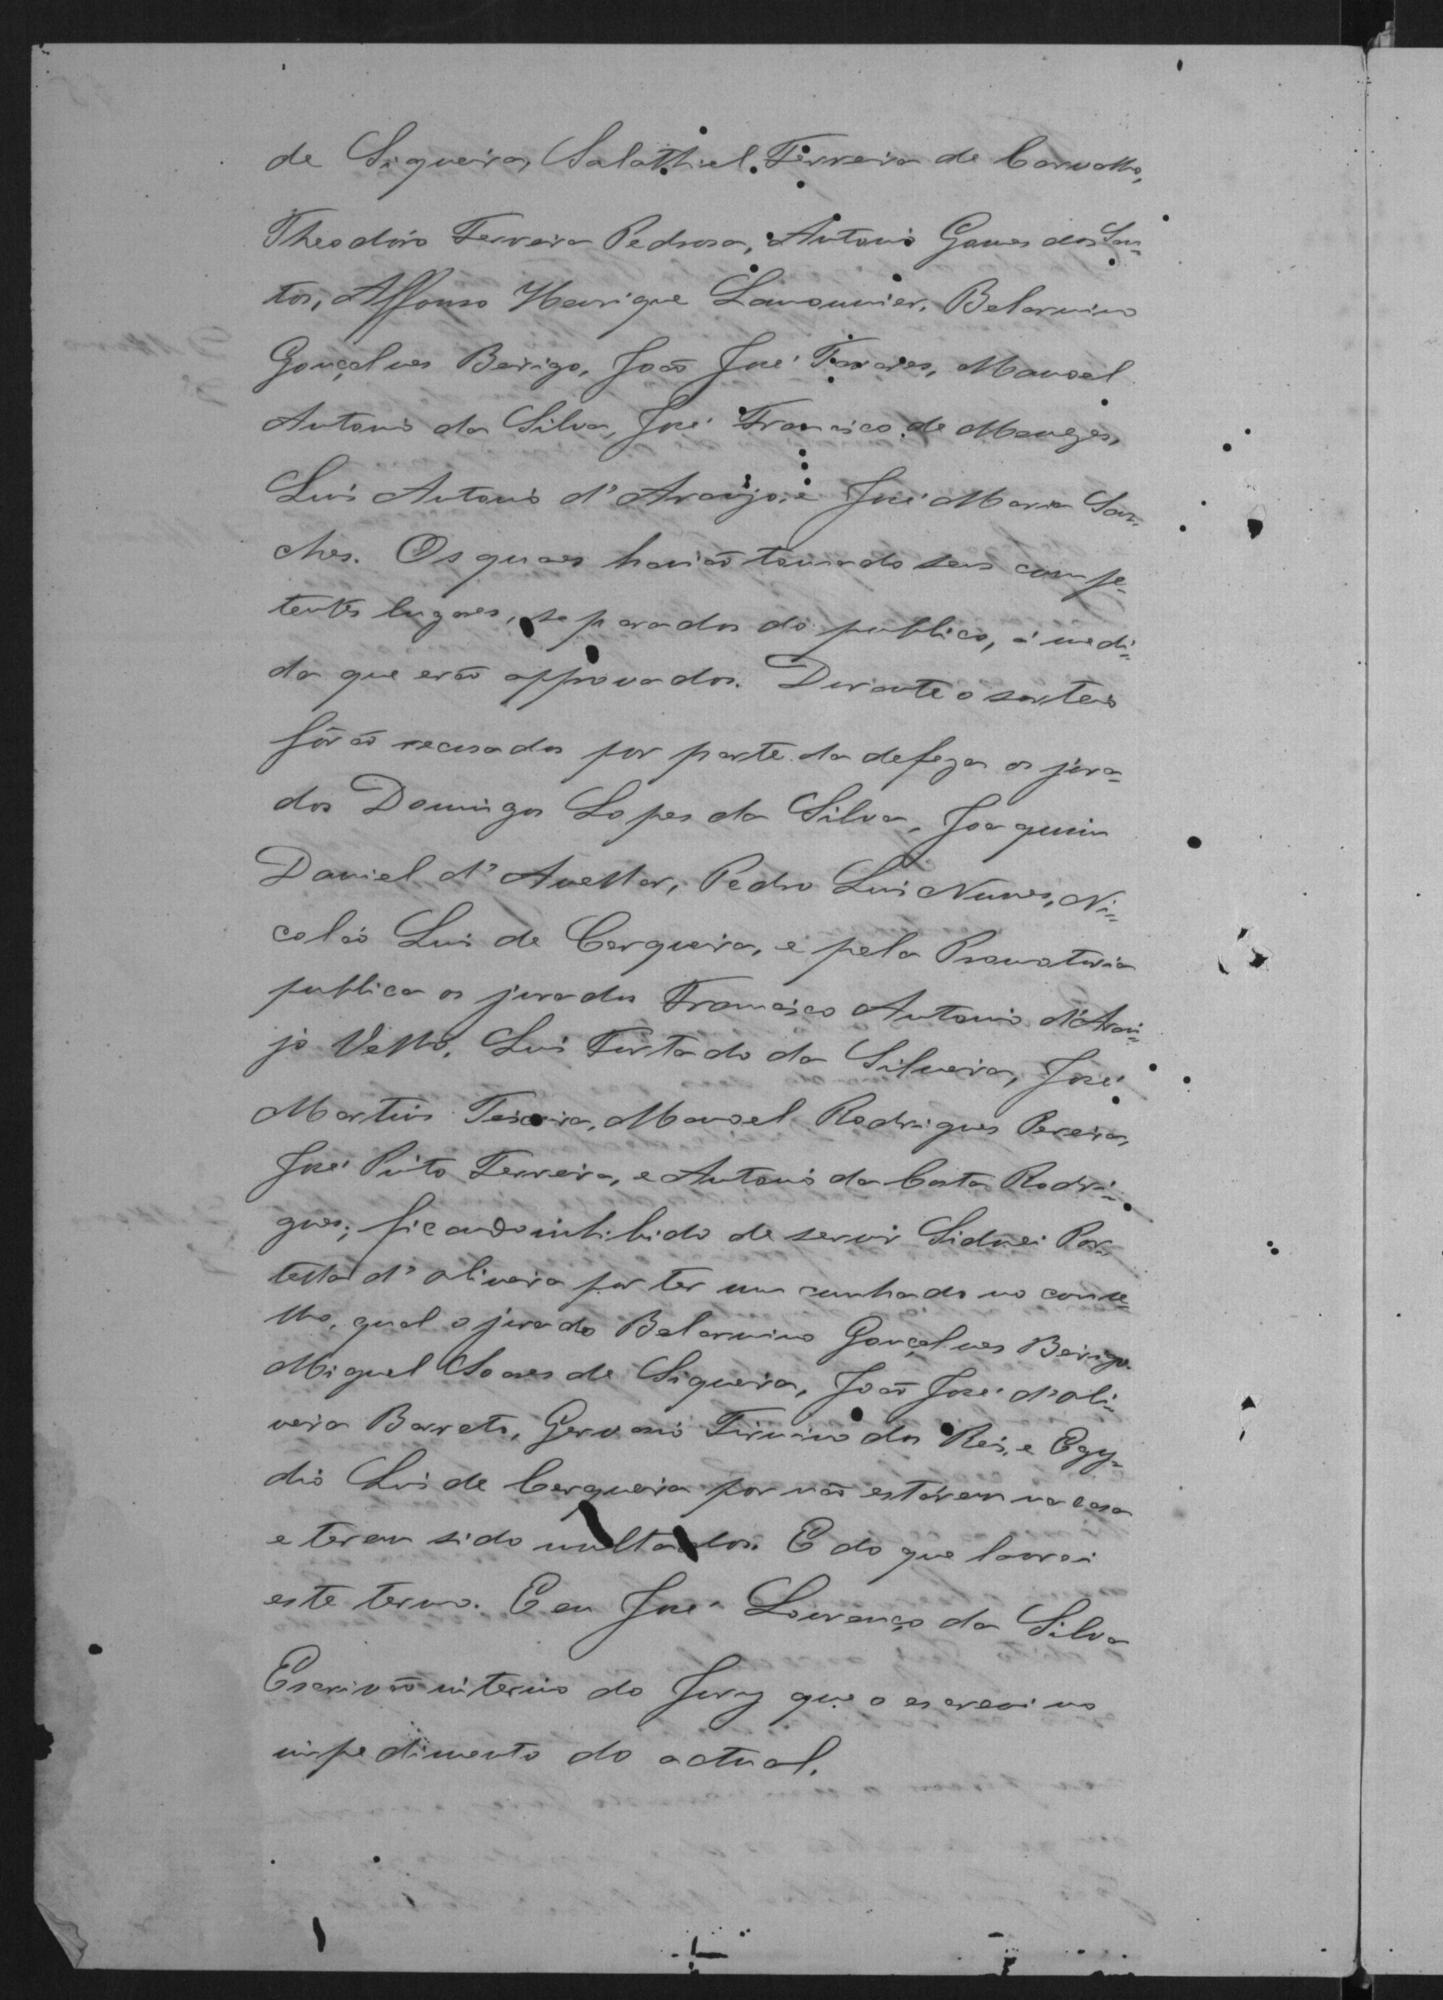 de Siqueira, Salathiel Ferreira de Carvalho,
Theodóro Ferreira Pedrosa, Antonio Gomes dos San-
tos, Affonso Henrique Lamounier, Belarmino
Gonçalves Berigo, João José Tavares, Manoel
Antonio da Silva, José Francisco de Menezes,
Luis Antonio d'Araujo, e José Maria San-
ches. Os quaes havião tomado seus compe-
tentes lugares, separados do publico, á medi-
da que erão approvados. Durante o sorteio
fôrão recusados por parte da defeza os jura-
dos Domingos Lopes da Silva, Joaquim
Daniel d'Avellar, Pedro Luis Nunes, Ni-
coláo Luis de Cerqueira, e pela Promotoria
publica os jurados Francisco Antonio d'Arau-
jo Velho, Luis Furtado da Silveira, José
Martins Teixeira, Manoel Rodrigues Pereira,
José Pinto Ferreira, e Antonio da Costa Rodri-
gues; ficando inhibido de servir Sidnei Por-
tella d'Oliveira por ter um cunhado no conse-
lho, qual o jurado Belarmino Gonçalves Berigo.
Miguel Soares de Siqueira, João José d'Oli-
veira Barreto, Gervasio Firmino dos Reis, e Egy-
dio Luis de Cerqueira por não estarem na casa
e terem sido multados. E do que lavrei
este termo. E eu José Lourenço da Silva
Escrivão interino do Jury que o escrevi no
impedimento do actual.